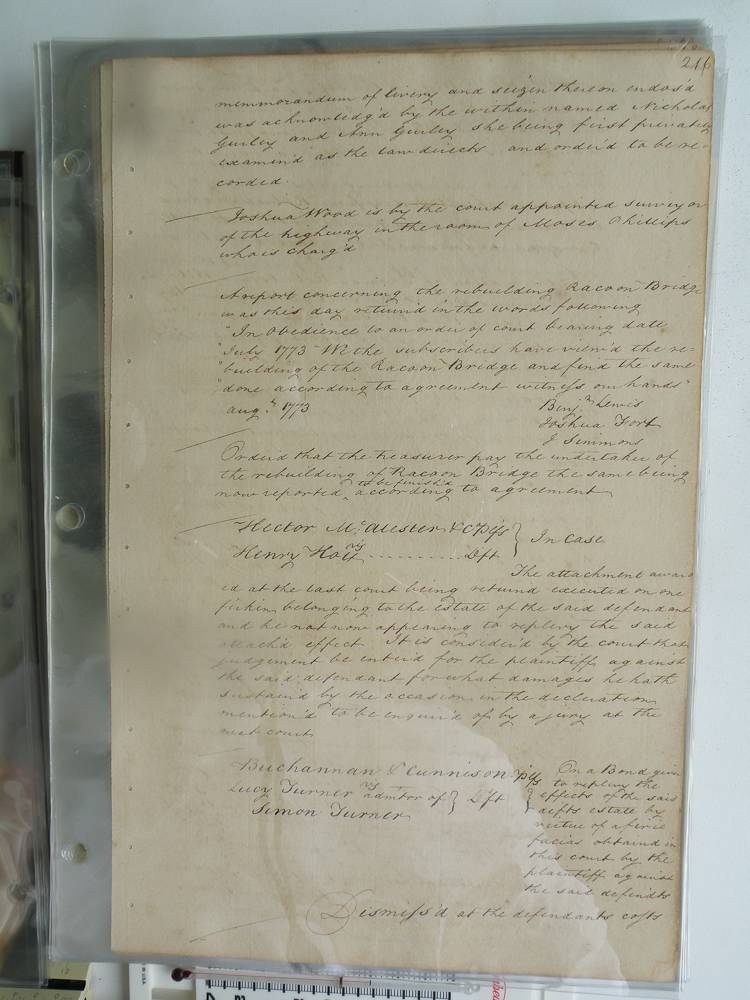 216
memmorandum of livery and seizen thereon endos'd
was acknowledg'd by the within named Nicholas
Gurley and Ann Gurley she being first privately
examin'd as the law directs and order'd to be re-
corded.
Joshua Wood is by the court appointed surveyor
of the highway in the room of Moses Phillips
who is charg'd
A report concerning the rebuilding Racoon Bridge
was this day return'd in the words following
"In Obedience to an order of court bearing date
"July 1773 We the subscribers have view'd the re-
"building of the Racoon Bridge and find the same
"done according to agreement witness our hands"
Augt. 1773
Benjn. Lewis
Joshua Fort
J Simmons
Orderd that the treasurer pay the undertaker of
the rebuilding of Racoon Bridge the same being
to be finish'd
now reported according to agreement
Hector McAlester & C Ptfs } In Case
vs
Henry Holt .......... Dft
The attachment award
ed at the last court being returnd executed on one
firkin belonging to the estate of the said defendant
and he not now appearing to replevy the said
attach'd effect It is consider'd by the court that
judgement be enter'd for the plaintiff against
the said defendant for what damages he hath
sustain'd by the occasion in the declaration
mention'd to be enquir'd of by a jury at the
next court
Buchannan & Cunnison Ptfs
vs
Lucy Turner admtor of } Dft
Simon Turner
On a Bond given
to replevy the
effects of the said
defts estate by
virtue of a fieri
facias obtained in
this court by the
plaintiff against
the said defendts
Dismiss'd at the defendants costs